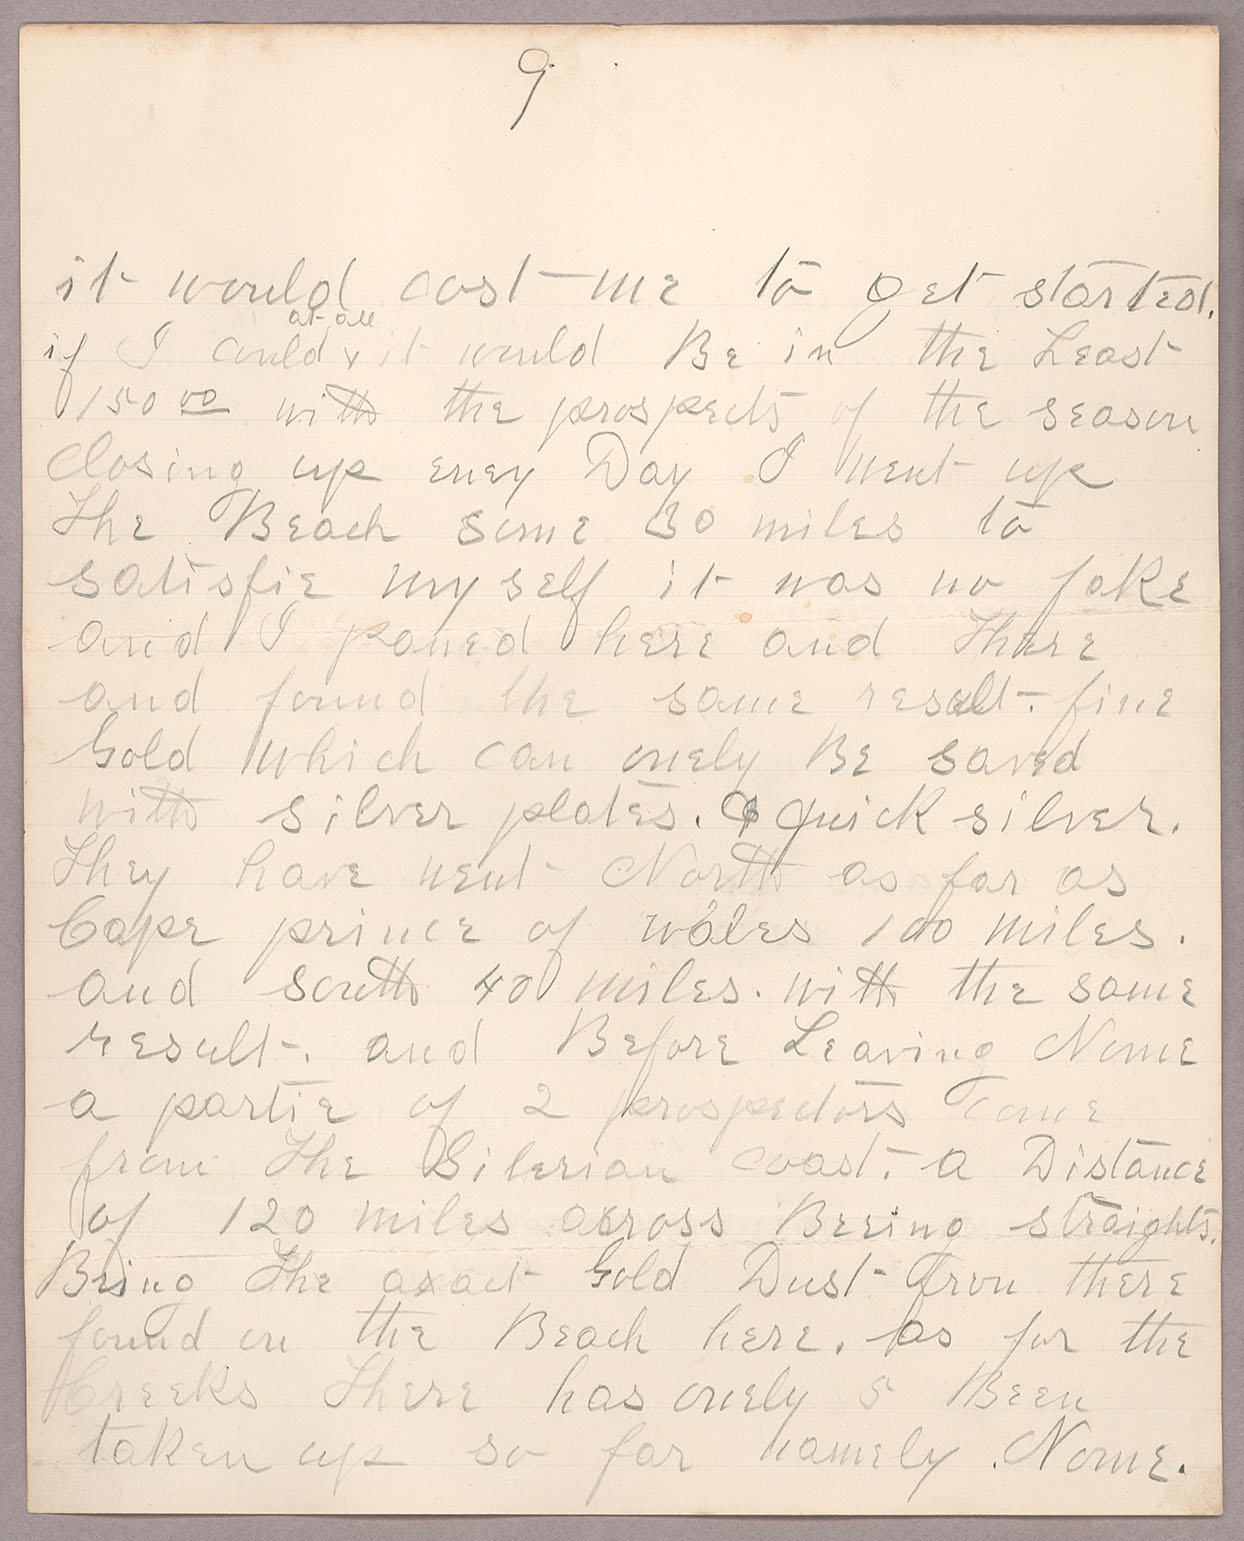 9
it would cost me to get started.
at all
if I could x it would Be in the Least
150 00 with the prospects of the season
Closing up eney Day I went up
The Beach some 30 miles to
satisfie my self it was no fake
and I paned here and There
and found the same result. fine
Gold which can onely Be saved
with silver plates. & quick silver.
They have went North as far as
Cape prince of wales 100 miles.
and south 40 miles. with the same
result. and Before Leaving Nome
a partie of 2 prospectors came
from The Siberian coast. a Distance
of 120 miles across Bering straights.
Bring The axact Gold Dust from there
found on the Beach here. as for the
Creeks There has onely 5 Been
taken up so far namely. Nome.